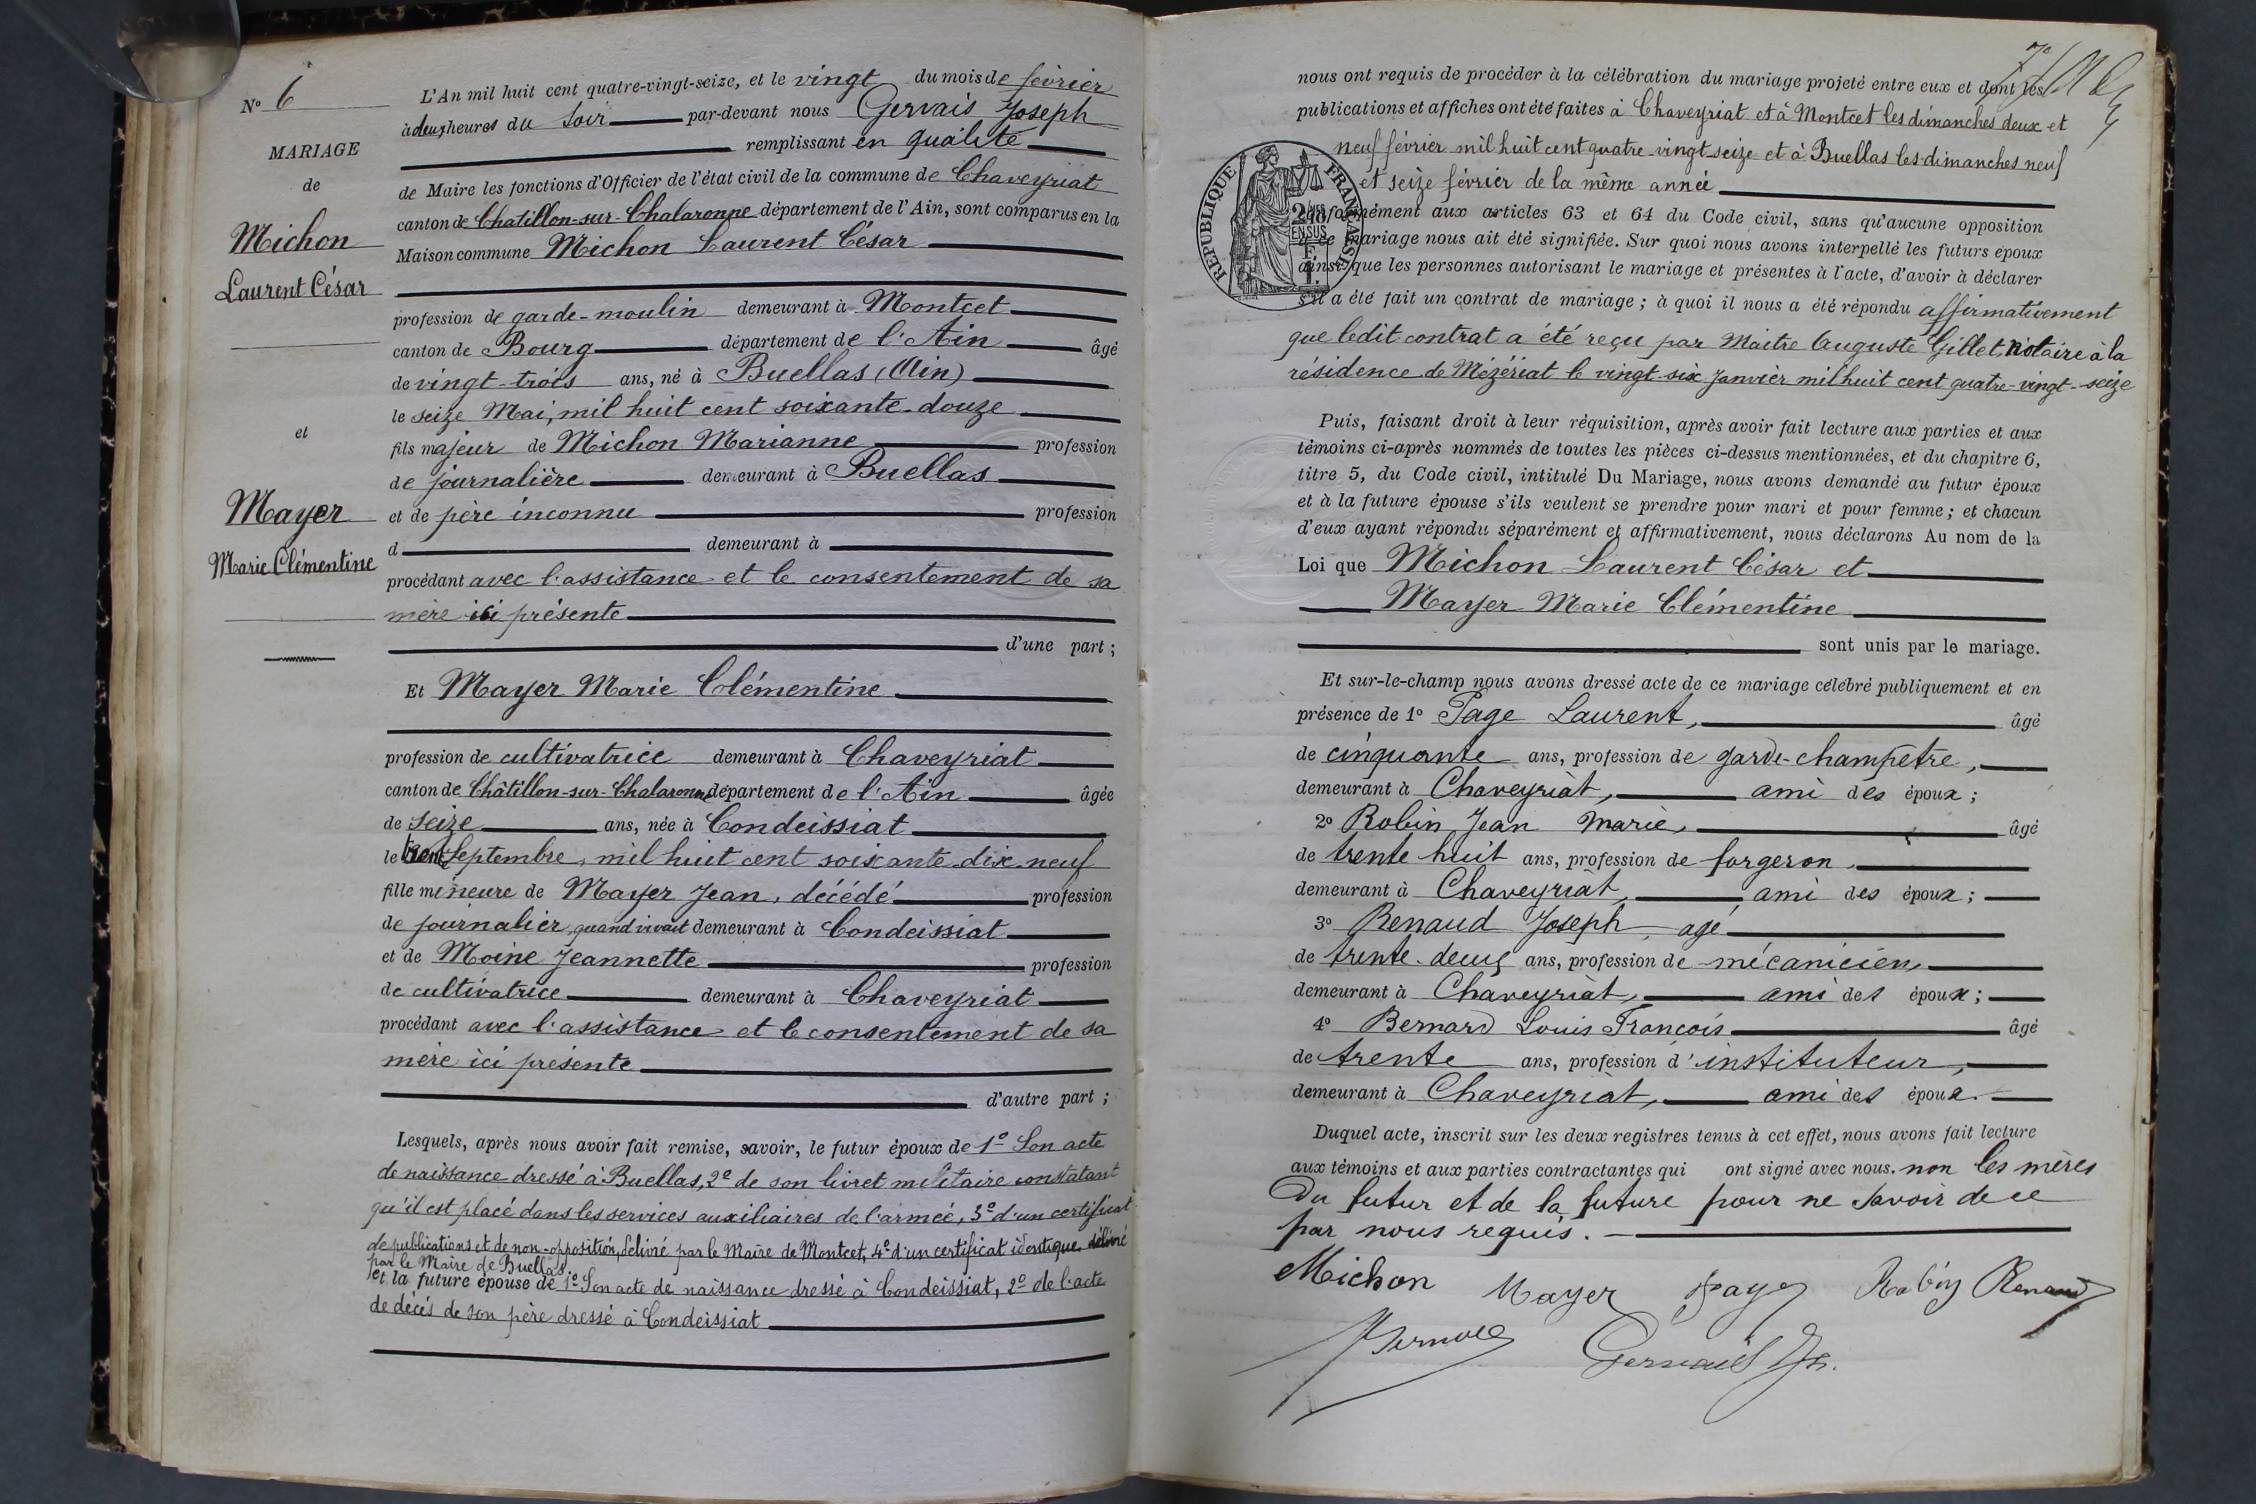 N° 6
MARIAGE
de
Michon
Laurent César
et
Mayer
Marie Clémentine
L'An mil huit cent quatre-vingt-seize, et le vingt du mois de février
à deux heures du soir par-devant nous Gervais Joseph
remplissant en qualité
de Maire les fonctions d'Officier de l'état civil de la commune de Chaveyriat
canton de Chatillon-sur-Chalaronne département de l'Ain, sont comparus en la
Maison commune Michon Laurent César
profession de garde-moulin demeurant à Montcet
canton de Bourg département de l'Ain âgé
de vingt-trois ans, né à Buellas (Ain)
le seize Mai, mil huit cent soixante-douze
fils majeur de Michon Marianne profession
de journalière demeurant à Buellas
et de père inconnu profession
d demeurant à
procédant avec l'assistance et le consentement de sa
mère ici présente
d'une part ;
Et Mayer Marie Clémentine
profession de cultivatrice demeurant à Chaveyriat
canton de Châtillon-sur-Chalaronne département de l'Ain âgée
de seize ans, née à Condeissiat
le Septembre, mil huit cent soixante-dix-neuf
fille mineure de Mayer Jean, décédé profession
de journalier, quand vivait demeurant à Condeissiat
et de Moine Jeannette profession
de cultivatrice demeurant à Chaveyriat
procédant avec l'assistance et le consentement de sa
mère ici présente
d'autre part ;
Lesquels, après nous avoir fait remise, savoir, le futur époux de 1° Son acte
de naissance dressé à Buellas, 2° de son livret militaire constatant
qu'il est placé dans les services auxiliaires de l'armée, 3° d'un certificat
de publications et de non-opposition, délivré par le Maire de Montcet, 4° d'un certificat identique délivré
par le Maire de Buellas
et la future épouse de 1° Son acte de naissance dressé à Condeissiat, 2° de l'acte
de décès de son père dressé à Condeissiat
nous ont requis de procéder à la célébration du mariage projeté entre eux et dont les
publications et affiches ont été faites à Chaveyriat et à Montcet les dimanches deux et
neuf février mil huit cent quatre-vingt-seize et à Buellas les dimanches neuf
et seize février de la même année
RÉPUBLIQUE FRANÇAISE
2/10 EN SUS
conformément aux articles 63 et 64 du Code civil, sans qu'aucune opposition
à ce mariage nous ait été signifiée. Sur quoi nous avons interpellé les futurs époux
ainsi que les personnes autorisant le mariage et présentes à l'acte, d'avoir à déclarer
s'il a été fait un contrat de mariage ; à quoi il nous a été répondu affirmativement
que ledit contrat a été reçu par Maitre Auguste Gillet, Notaire à la
résidence de Mézériat le vingt-six Janvier mil huit cent quatre-vingt-seize
Puis, faisant droit à leur réquisition, après avoir fait lecture aux parties et aux
témoins ci-après nommés de toutes les pièces ci-dessus mentionnées, et du chapitre 6,
titre 5, du Code civil, intitulé Du Mariage, nous avons demandé au futur époux
et à la future épouse s'ils veulent se prendre pour mari et pour femme ; et chacun
d'eux ayant répondu séparément et affirmativement, nous déclarons Au nom de la
Loi que Michon Laurent César et
Mayer Marie Clémentine
sont unis par le mariage.
Et sur-le-champ nous avons dressé acte de ce mariage célébré publiquement et en
présence de 1° Page Laurent, âgé
de cinquante ans, profession de garde-champêtre,
demeurant à Chaveyriat, ami des époux ;
2° Robin Jean Marie, âgé
de trente huit ans, profession de forgeron,
demeurant à Chaveyriat, ami des époux ;
3° Renaud Joseph, agé
de trente-deux ans, profession de mécanicien,
demeurant à Chaveyriat, ami des époux ;
4° Bernard Louis François âgé
de trente ans, profession d'instituteur,
demeurant à Chaveyriat, ami des époux.
Duquel acte, inscrit sur les deux registres tenus à cet effet, nous avons fait lecture
aux témoins et aux parties contractantes qui ont signé avec nous. non les mères
du futur et de la future pour ne savoir de ce
par nous requis.
Michon Mayer Page Robin Renaud
Gervais Jh.